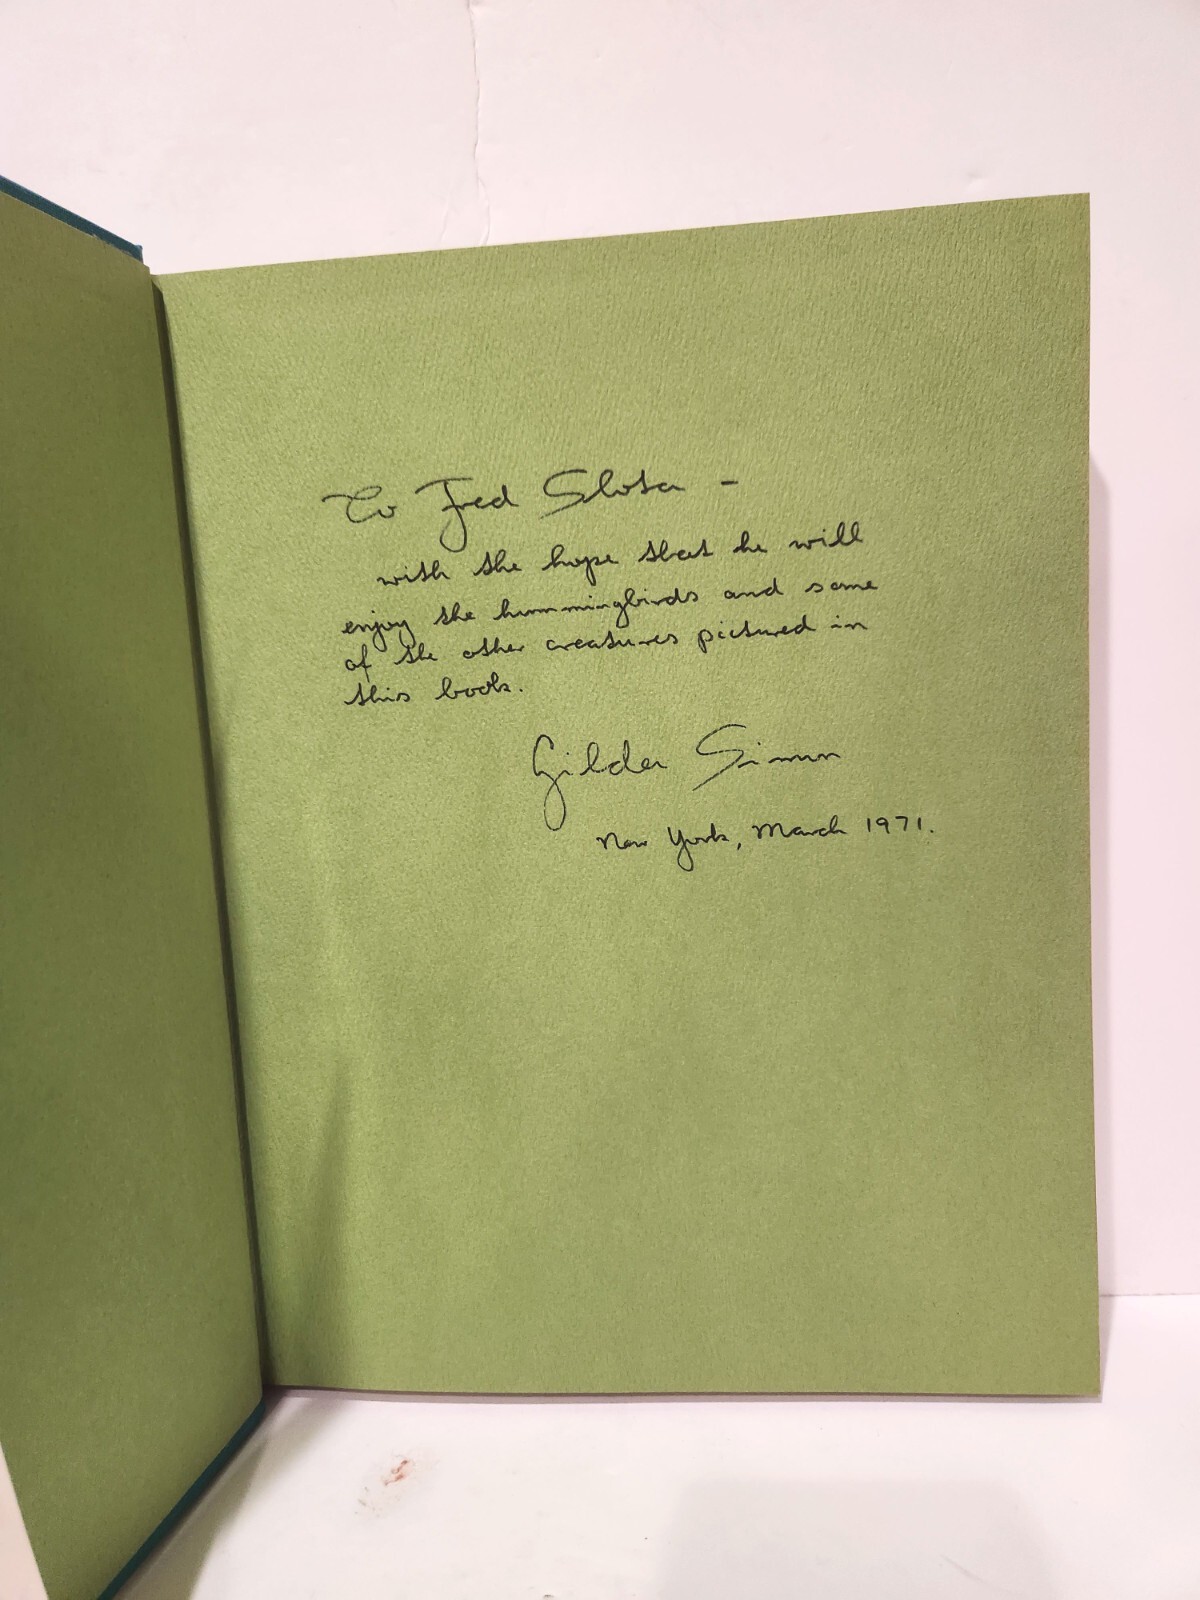 To Fred Slota -
with the hope that he will
enjoy the hummingbirds and some
of the other creatures pictured in
this book.
Gilda Simon
New York, March 1971.